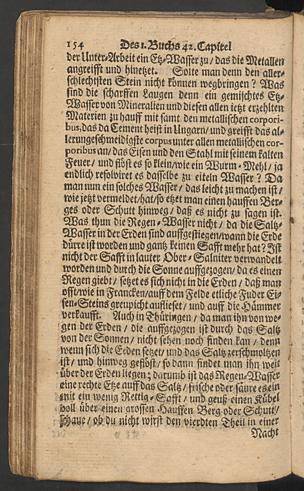 154 Des 1. Buchs 42. Capitel
der Unter-Arbeit ein Etz-Wasser zu / das die Metallen
angreifft und hinetzet. Solte man denn den aller-
schlechtisten Stein nicht können wegbringen? Was
sind die scharffen Laugen denn ein gemischtes Etz-
Wasser von Mineralien und diesen allen jetzt erzehlten
Materien zu hauff mit samt den metallischen corpori-
bus, das da Cement heist in Ungarn / und greifft das al-
lerungeschmeidigste corpus unter allen metallischen cor-
poribus an / das Eisen und den Stahl mit seinem kalten
Feuer / und frißt es so klein / wie ein Wurm-Mehl / ja
endlich resolviret es dasselbe zu eiteln Wasser? Da
man nun ein solches Wasser / das leicht zu machen ist /
wie jetzt vermeldet / hat / so etzt man einen hauffen Ber-
ges oder Schutt hinweg / daß es nicht zu sagen ist.
Was thun die Regen-Wasser nicht / da die Saltz-
Wasser in der Erden sind auffgestiegen / wann die Erde
dürre ist worden und gantz keinen Safft mehr hat? Ist
nicht der Safft in lauter Ober-Salniter verwandelt
worden und durch die Sonne auffgezogen / da es einen
Regen giebt / setzet es sich nicht in die Erden / daß man
offt / wie in Francken / auff dem Felde etliche Fuder Ei-
sen-Steins gewascht auffließt / und auff die Hämmer
verkaufft. Auch in Thüringen / da man ihn von we-
gen der Erden / die auffgezogen ist durch das Saltz
von der Sonnen / nicht sehen noch finden kan / denn
wenn sich die Erden setzet / und das Saltz zerschmoltzen
ist / und hinweg geflößt / so dann findet man ihn weit
über der Erden liegen; darumb ist das Regen-Wasser
eine rechte Etze auff das Saltz / frische oder säure es ein
mit ein wenig Rettig-Safft / und geuß einen Kübel
voll über einen grossen Hauffen Berg oder Schutt /
schaue / ob du nicht wirst den vierdten Theil in einer
Nacht